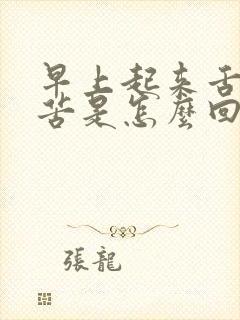 早上起来舌
苦是怎麼回
張龍